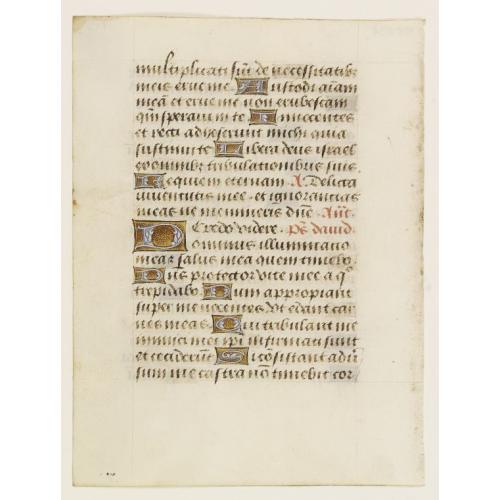 multiplicati sūt de necessitatib;
meis erue me. Custodi aīam
meā et erue me non erubescam
qm̄ speraui in te. Innocentes
et recti adheserunt michi quia
sustinui te. Libera deus israel
ex omnib; tribulationibus suis.
Requiem eternam. A. Delicta
iuuentutis mee. et ignorantias
meas ne memineris dn̄e. Ant̄.
Credo videre. Ps̄ dauid.
Dominus illuminatio
mea z salus mea quem timebo.
Dn̄s protector vite mee a q°
trepidabo. Dum appropiant
super me nocentes vt edant car
nes meas. Qui tribulant me
inimici mei ipi infirmati sunt
et ceciderūt. Si cōsistant adu'
sum me castra nō timebit cor